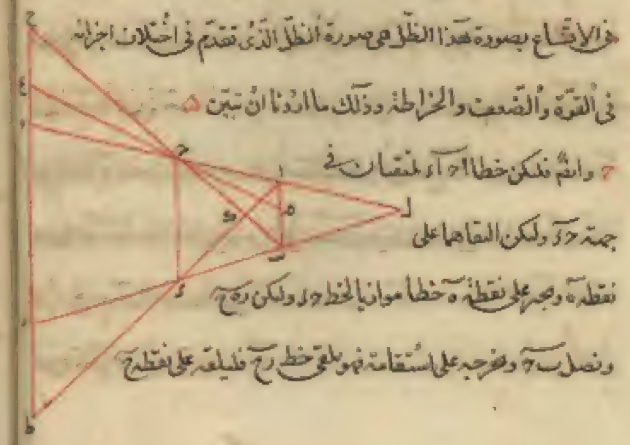 في الاقناع بصورة هذا الظل هي صورة الظل الذي تقدم في اختلاف اجزائه
في القوة والضعف والخراطة وذلك ما اردنا ان نبين
وايضا فليكن خطا ا ح ٮ ء يلتقيان في
جهة ح ء وليكن التقاهما على
نقطة ه ونجز على نقطة ه خطا موازيا لخط ح ء وليكن ر ه ح
ونصل ب ح ونخرجه على استقامة فهو يلقى خط ر ح فليلقه على نقطة ح